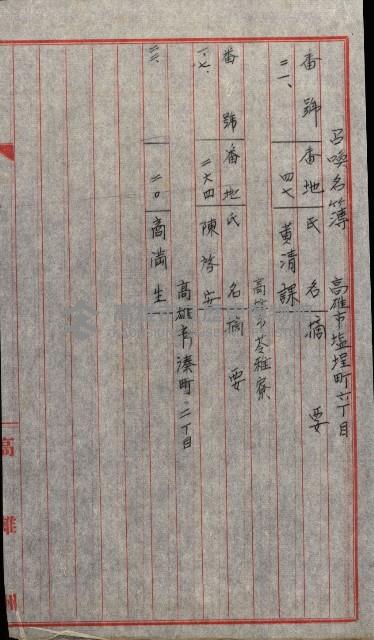 召喚名簿　高雄市塩埕町六丁目
番號　番地　氏名　摘要
二一、　四七　黃清課
高雄市苓雅寮
番號　番地　氏名　摘要
一七、　二六四　陳啓安
高雄市湊町二丁目
三、　二〇　高滿生
高雄州